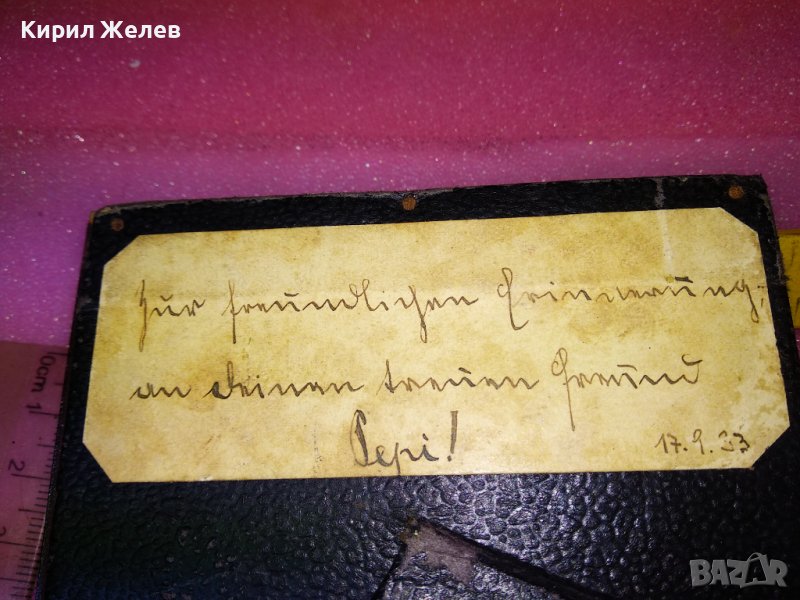 Кирил Желев
zur freundlichen Erinnerung,
an deinen treuen Freund
Pepi!
17.9.33
0cm 1
2
BAZAR